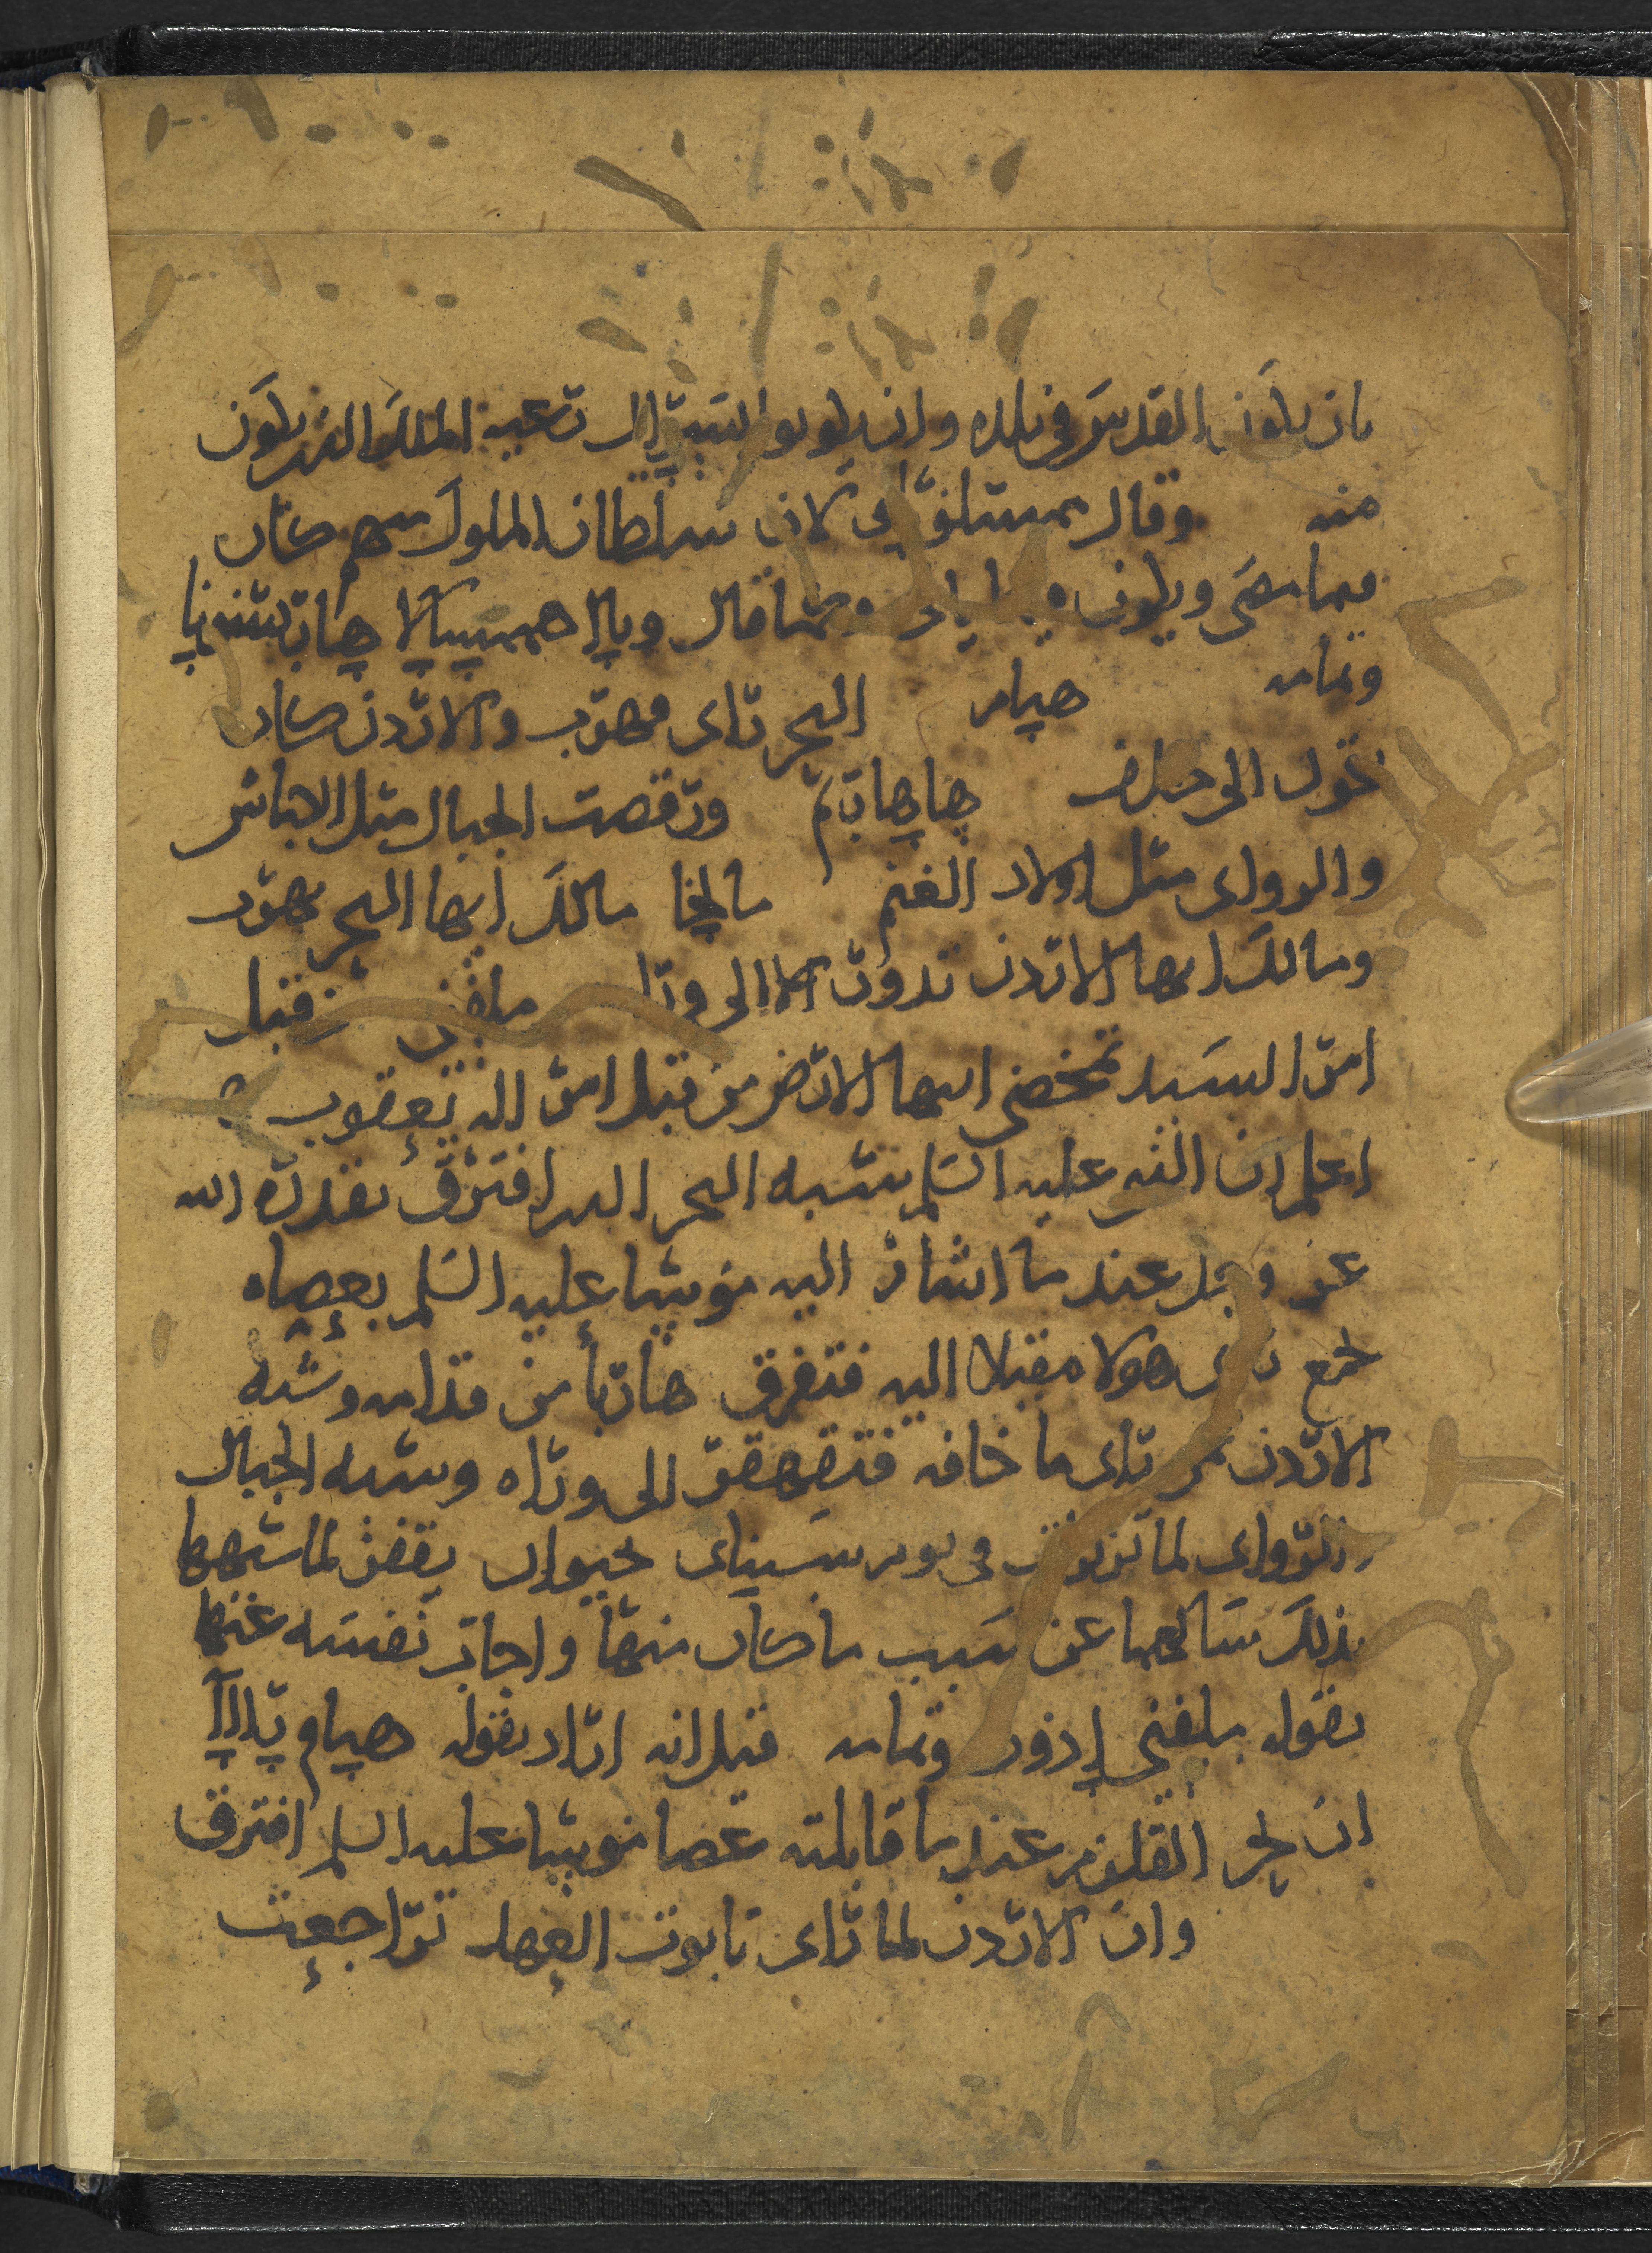 بان يكون القدس في بلده وان يكونوا يسرال رعية الملك الذي يكون
منه وقال ممشلوثاي لان سلطان الملوك منهم كان
فيما مضى ويكون فيما قال ويلا هميم
وتمامه هيام البحر راى فهرب والاردن كان
يحول الى خلف هاهاريم ورقصت الجبال مثل الاباش
والروابي مثل اولاد الغنم مالخا مالك ايها البحر تهرب
ومالك ايها الاردن تدور الا الى ورا ملفني من قبل
امر السيد تمخضي ايها الارض من قبل امر اله يعقوب
اعلم ان النبي عليه السلم يشبه البحر الذي افترق بقدرة الله
عز وجل عندما اشار اليه موشا عليه السلم بعصاه
بمن راى هولا مقبلا اليه فتفرق هاربا من قدامه وشبه
الاردن بمن راى ما خافه فتقهقر الى وراه وشبه الجبال
والروابي لما تزلزلت في يوم سيناي بحيوان يقفز لما شبهها
بذلك سالهما عن سبب ما كان منها واجاب نفسه عنها
بقوله ملفني ادون وتمامه قيل انه اراد بقوله هيام راا
ان بحر القلزم عندما قابلته عصا موشا عليه السلم افترق
وان الاردن لما راى تابوت العهد تراجعت